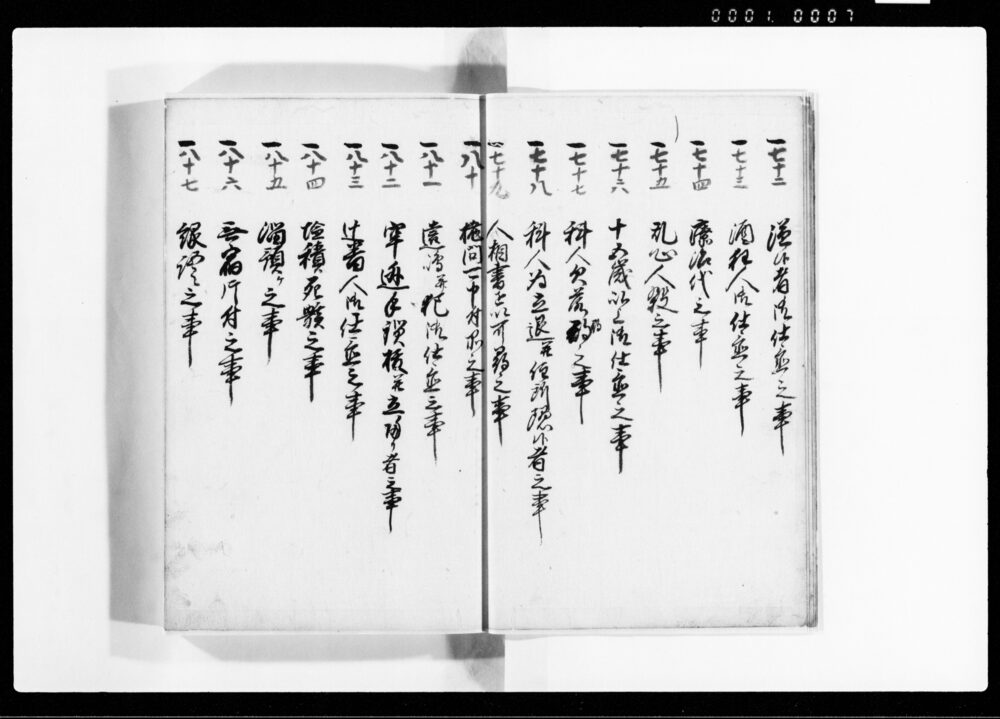 0001 0007
一七十二 者御仕置之事
一七十三 酒狂人御仕置之事
一七十四 療治代之事
一七十五 乱心人殺之事
一七十六 十五歳以之御仕置之事
一七十七 科人欠落尋之事
一七十八 科人為立退并住所隠候者之事
七十九 人相書を以可尋之事
一八十 拷問可申付品之事
一八十一 遠島并犯御仕置之事
一八十二 牢手鎖立帰り者之事
一八十三 辻番人御仕置之事
一八十四 塩積死骸之事
一八十五 溜預ヶ之事
一八十六 無宿片付之事
一八十七 之事